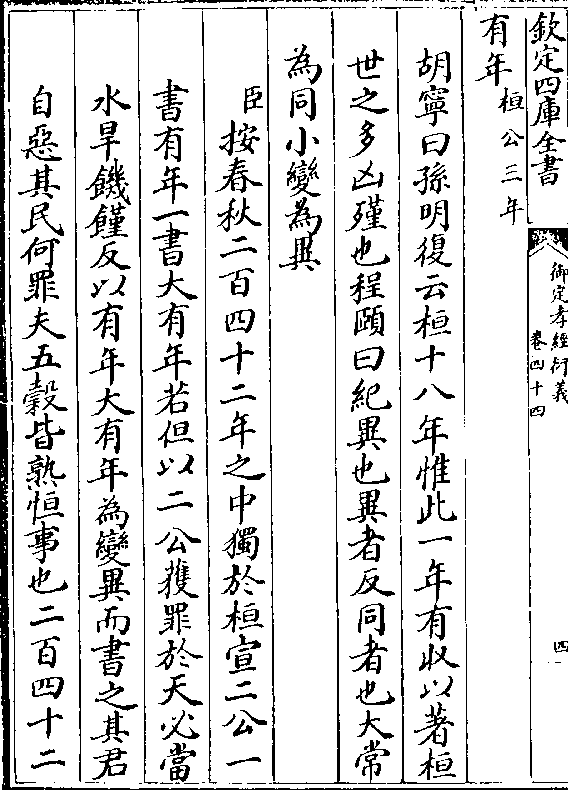 欽定四庫全書
御定孝經衍義
卷四十四
四
有年桓公三年
胡寧曰孫明復云桓十八年惟此一年有收以著桓
世之多凶殣也程頤曰紀異也異者反同者也大常
為同小變為異
臣按春秋二百四十二年之中獨於桓宣二公一
書有年一書大有年若但以二公獲罪於天必當
水旱饑饉反以有年大有年為變異而書之其君
自惡其民何罪夫五穀皆熟恒事也二百四十二